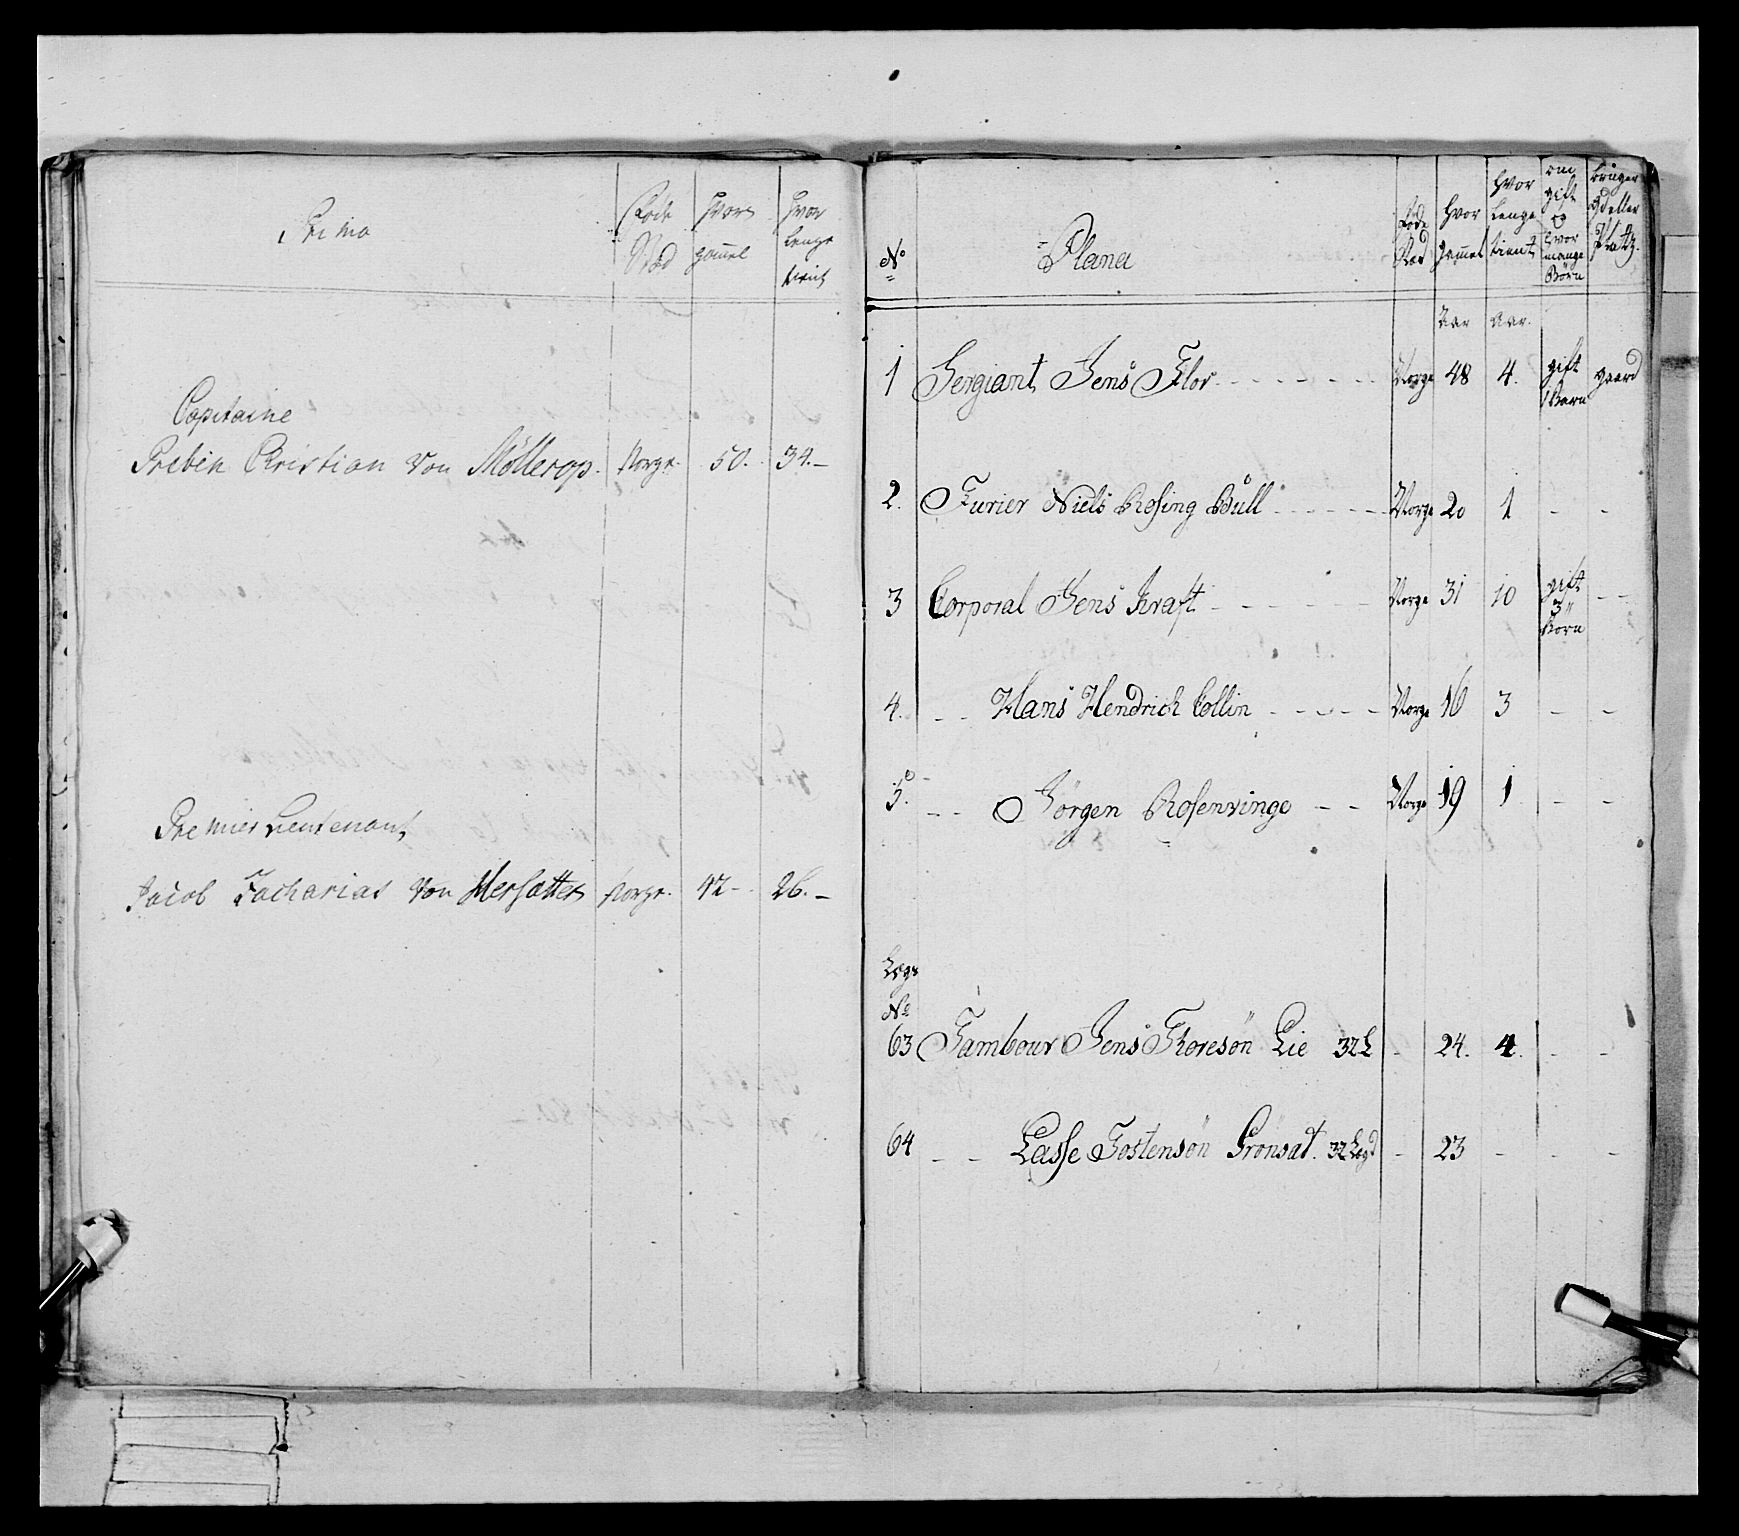 Prima
Føde Stæd
Hvor gamel
Hvor lenge tient
Capitaine
Preben Christian von Møllerop. Norge. 50. 34.
Premier Lieutenant
Jacob Zacharias von Mersatter Norge. 42 26.
No Plana
Føde Stæd
Hvor gamel
Hvor lenge tient
om gift og hvor mange Børn
bruger gd eller Platz.
Aar Aar.
1 Sergiant Jens Flor Norge 48 4. gift 1 Barn gaard
2. Furier Niels Rosing Bull Norge 20 1 - -
3 Corporal Jens Kraft Norge 31 10 gift 3 Børn - -
4. - - Hans Hendrich Collin Norge 16 3 - -
5. - - Jørgen Rosenvinge - - Norge 19 1 - -
Legs
No
63 Tambour Jens Thoresøn Lie 32 L - 24. 4. - -
64 - - Lasse Tostensøn Grønsat. 32 Legd - 23 - - -